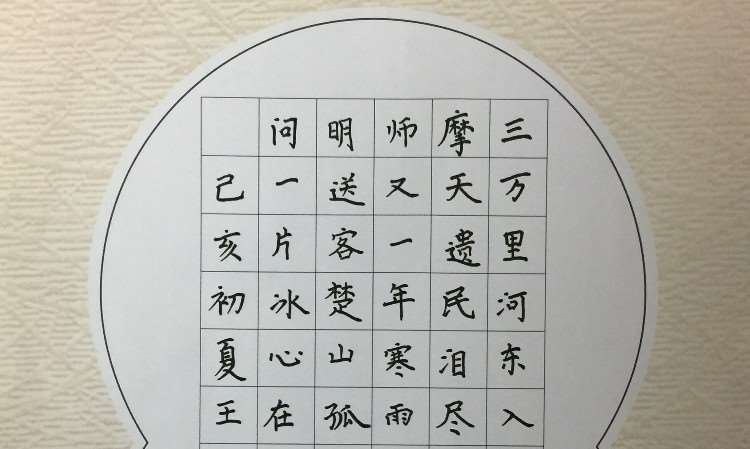 三万里河东入
摩天遗民泪尽
师又一年寒雨
明送客楚山孤
问一片冰心在
己亥初夏王